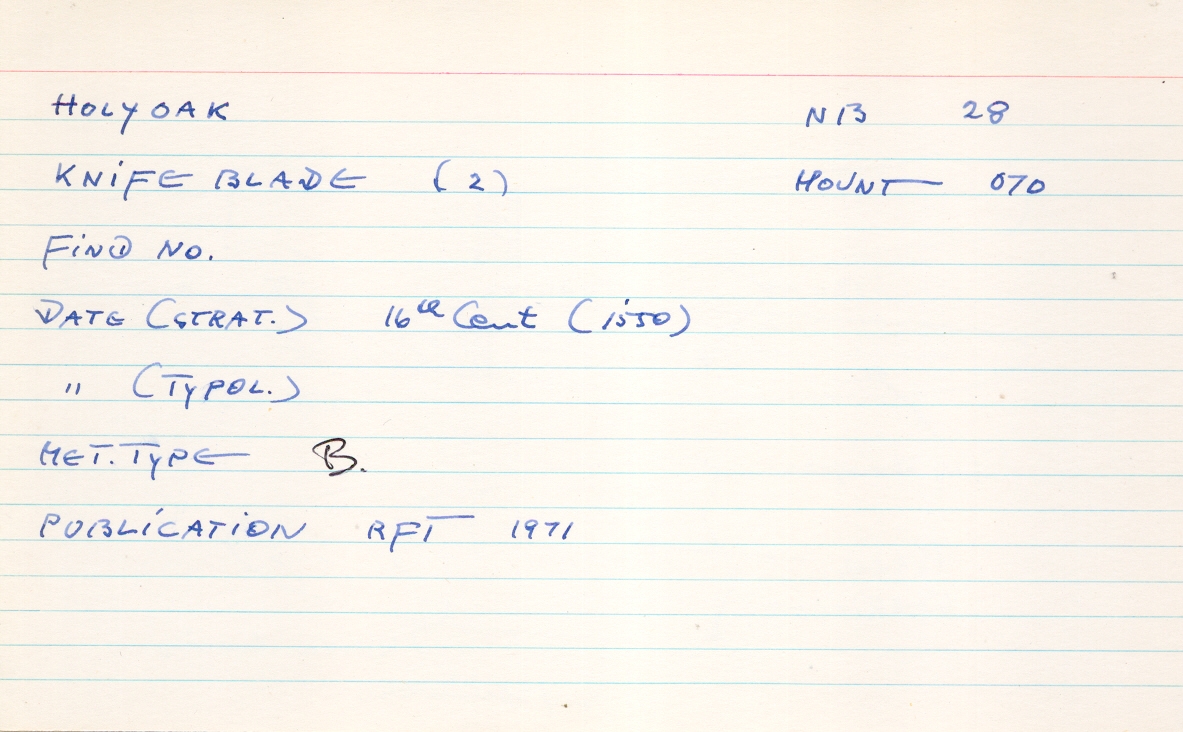 HOLYOAK N13 28
KNIFE BLADE (2) MOUNT 070
FIND NO.
DATE (STRAT.) 16th Cent (1550)
" (TYPOL.)
MET. TYPE B.
PUBLICATION RFT 1971